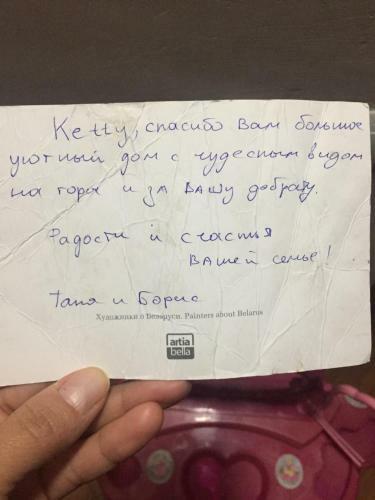 Ketty, спасибо Вам большое
уютный дом с чудесным видом
на горы и за Вашу доброту.
Радости и счастья
Вашей семье!
Таня и Борис
Художники о Беларуси. Painters about Belarus
artia
bella